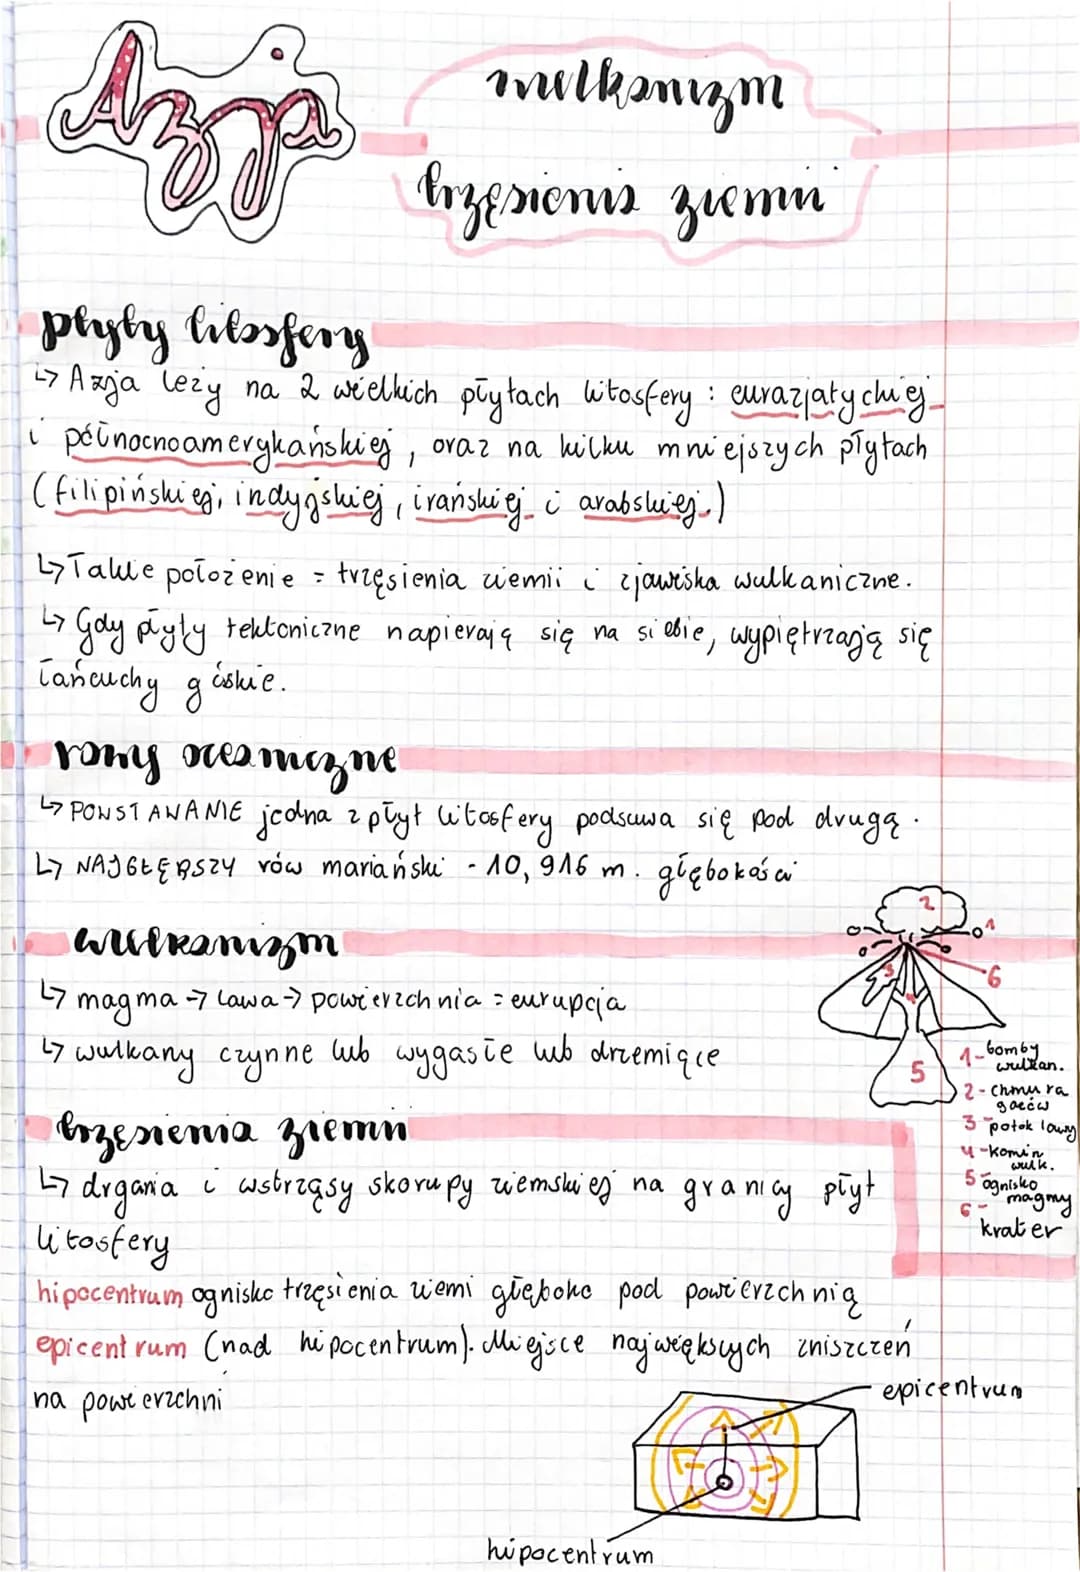 Azja
wulkanizm
trzęsienia ziemii
płyty litosfery
↳ Azja leży na 2 wielkich płytach litosfery : eurazjatyckiej
i północnoamerykańskiej, oraz na kilku mniejszych płytach
(filipińskiej, indyjskiej, irańskiej i arabskiej.)
↳ Takie położenie = trzęsienia ziemii i zjawiska wulkaniczne.
↳ Gdy płyty tektoniczne napierają się na siebie, wypiętrzają się
łańcuchy górskie.
rowy oceaniczne
↳ POWSTAWANIE jedna z płyt litosfery podsuwa się pod drugą.
↳ NAJGŁĘBSZY rów mariański - 10,916 m. głębokości
wulkanizm
↳ magma → lawa → powierzchnia = eurupcja
↳ wulkany czynne lub wygasłe lub drzemiące
2
1
3
6
4
5
1-bomby
wulkan.
2-chmura
gazów
3-potok lawy
4-komin
wulk.
5 ognisko
magmy
6-
krater
trzęsienia ziemii
↳ drgania i wstrząsy skorupy ziemskiej na granicy płyt
litosfery
hipocentrum ognisko trzęsienia ziemi głęboko pod powierzchnią
epicentrum (nad hipocentrum). Miejsce największych zniszczeń
na powierzchni
epicentrum
hipocentrum